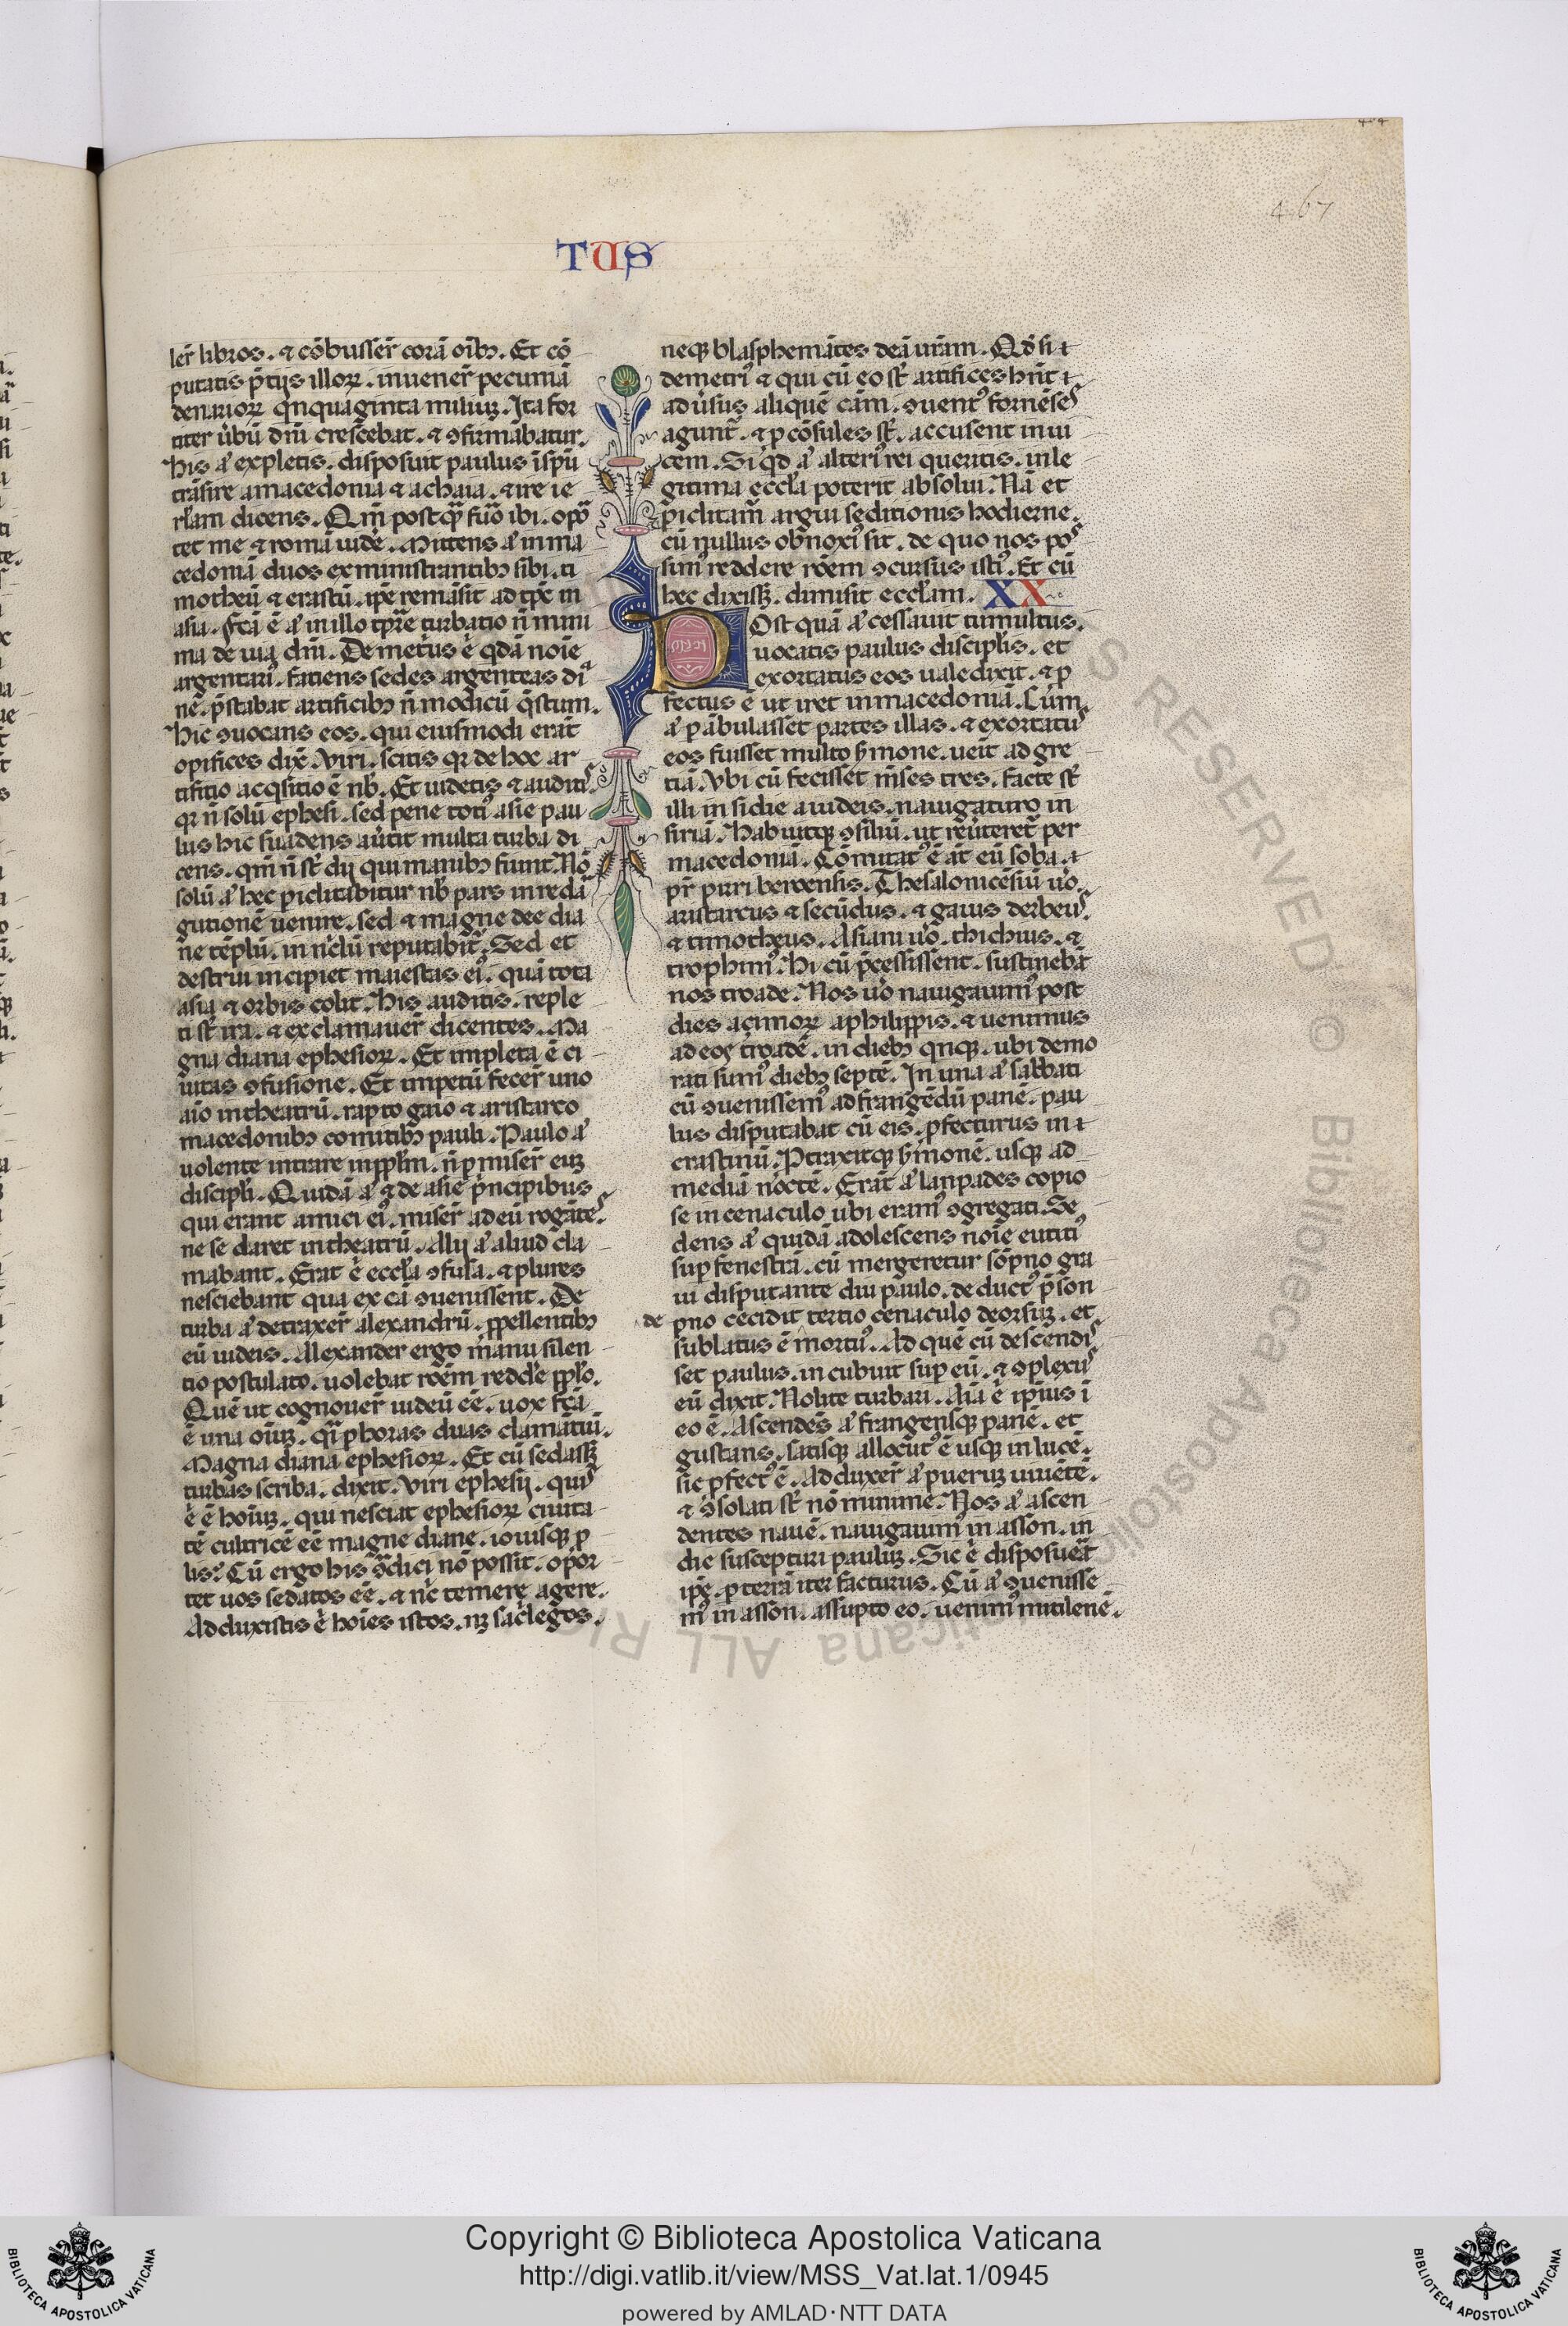 467
TUS
ler̄ libros. ⁊ cōbusser̄ corā oīb₉. Et cō
putatis p̄tijs illoꝝ. inuener̄ pecuniā
denarioꝝ qⁱnquaginta miliuꝫ. Ita for
titer ůbū dn̄i crescebat. ⁊ ꝯfirmābatur.
his aͦ expletis. disposuit paulus ī spū
trāsire a macedonia ⁊ achaia. ⁊ ire ie
rl̄am dicens. Qm̄ postqᷓ fuo ibi. opoꝛ
tet me ⁊ romā uide. Mittens aͦ in ma
cedoniā duos ex ministrantib₉ sibi. ti
motheū ⁊ erastū. ip̄e remāsit ad tp̄c in
asia. Fc̄a ē aͦ in illo tp̄re turbatio n̄ mini
ma de uia dn̄i. Demetrius ē qdā noīe
argentari᷒. fatiens sedes argenteas di
ne. p̄stabat artificib₉ n̄ modicū q̄stum.
hic ꝯuocans eos. qui eiusmodi erāt
opifices dix̄. Viri. scitis qꝛ de hoc ar
tifitio acq̄sitio ē nb̄. Et uidetis ⁊ auditis
qꝛ n̄ solū ephesi. sed pene toti᷒ asie pau
lus hic suadens aůtit multa turba di
cens. qm̄ n̄ st̄ dij qui manib₉ fiunt. Nō
solū aͦ hec piclitabitur nb̄ pars in redā
gutionē uenire. sed ⁊ magne dee dia
ne tēplū. in nc̄lū reputabit᷑. Sed et
destrui incipiet maiestas ei᷒. quā tota
asia ⁊ orbis colit. His auditis. reple
ti st̄ ira. ⁊ exclamauer̄ dicentes. Ma
gna diana ephesioꝝ. Et impleta ē ci
uitas ꝯfusione. Et impetū fecer̄ uno
aīo in theatrū. rapto gaio ⁊ aristarco
macedonib₉ comitib₉ pauli. Paulo aͦ
uolente intrare in ppl̄m. n̄ pmiser̄ euꝫ
discipl̄i. Quidā aͦ ⁊ de asie p̄ncipibus
qui erant amici ei᷒. miser̄ ad eū rogāte᷒
ne se daret in theatrū. Alij aͦ aliud cla
mabant. Erat ē eccl̄a ꝯfusa. ⁊ plures
nesciebant qua ex cā ꝯuenissent. De
turba aͦ detraxer̄ alexandrū. ꝓpellentib₉
eū iudeis. Alexander ergo manu silen
tio postulato. uolebat rōem redde᷒ pplo.
Quē ut cognouer̄ iudeū eē. uox fc̄a
ē una oīuꝫ. qⁱ p horas duas clamātiū.
Magna diana ephesioꝝ. Et cū sedassꝫ
turbas scriba. dixit. Viri ephesij. qui᷒
ē ē hoīuꝫ. qui nesciat ephesioꝝ ciuita
tē cultricē eē magne diane. iouisqꝫ p
lis? Cū ergo his ꝯͣdici nō possit. opor
tet uos sedatos eē. ⁊ nc̄ temere agere.
Adduxistis ē hoīes istos. nꝫ sac̄legos.
neqꝫ blasphemātes deā ur̄am. Qd̓ si ⁊
demetri᷒ ⁊ qui cū eo st̄ artifices hn̄t ⁊
adůsus aliquē cām. ꝯuent᷒ forēse᷒
agunt᷑. ⁊ p cōsules st̄. accusent inui
cem. Si qd aͦ alteri᷒ rei queritis. in le
gitima eccl̄a poterit absolui. Nā et
piclitam᷑ argui seditionis hodierne.
cū nullus obnoxi᷒ sit. de quo nos po᷒
sim᷒ reddere rōem ꝯcursus isti᷒. Et cū
hec dixissꝫ. dimisit eccl̄am. XX
Post quā aͦ cessauit tumultus.
uocatis paulus discipl̄is. et
exortatus eos uale dixit. ⁊ p
fectus ē ut iret in macedoniā. Cum
aͦ pābulasset partes illas. ⁊ exortatu᷒
eos fuisset multo s̓mone. ueit ad gre
tiā. Vbi cū fecisset mēses tres. facte st̄
illi insidie a iudeis. nauigaturo in
siriā. Habuitqꝫ ꝯsiliū. ut reůteret᷑ per
macedoniā. Cōmitat᷒ ē at̄ eū soba. ⁊
pr̄ pirri beroensis. Thesalonicēsiū uͦo.
aristarcus ⁊ secūdus. ⁊ gaius derbeu᷒.
⁊ timotheus. Asiani uͦo. thichius. ⁊
trophim᷒. Hi cū p̄cessissent. sustinebāt
nos troade. Nos uͦo nauigauim᷒ post
dies açimoꝝ a philippis. ⁊ uenimus
ad eos troadē. in dieb₉ qⁱnqꝫ. ubi demo
rati sum᷒ dieb₉ septē. In una aͦ sabbati
cū ꝯuenissem᷒ ad frangēdū panē. pau
lus disputabat cū eis. pfecturus in ⁊
crastinū. Ptraxitqꝫ s̓monē. usqꝫ ad
mediā noctē. Erāt aͦ lanpades copio
se in cenaculo ubi eram᷒ ꝯgregati. Se
dens aͦ quidā adolescens noīe eutiti᷒
sup fenestrā. cū mergeretur sōpno gra
ui disputante diu paulo. deduct᷒ p̄ son
de pno cecidit tertio cenaculo deorsuꝫ. et
sublatus ē mortu᷒. Ad quē cū descendi᷒
set paulus. incubuit sup eū. ⁊ ꝯplexu᷒
eū dixit. Nolite turbari. Aīa ē ipīus ī
eo ē. Ascendēs aͦ frangensqꝫ panē. et
gustans. satisqꝫ allocut᷒ ē usqꝫ in lucē.
sic pfect᷒ ē. Adduxer̄ aͦ pueruꝫ uiuētē.
⁊ ꝯsolati st̄ nō minime. Nos aͦ ascen
dentes nauē. nauigauim᷒ in asson. in
dic suscepturi pauluꝫ. Sic ē disposuēat
ip̄e. p terrā iter facturus. Cū aͦ ꝯuenisse
m᷒ in asson. assūpto eo. uenim᷒ mitilenē.
ALL RIGHTS RESERVED © Biblioteca Apostolica Vaticana
Copyright © Biblioteca Apostolica Vaticana
http://digi.vatlib.it/view/MSS_Vat.lat.1/0945
powered by AMLAD·NTT DATA
BIBLIOTECA APOSTOLICA VATICANA
BIBLIOTECA APOSTOLICA VATICANA